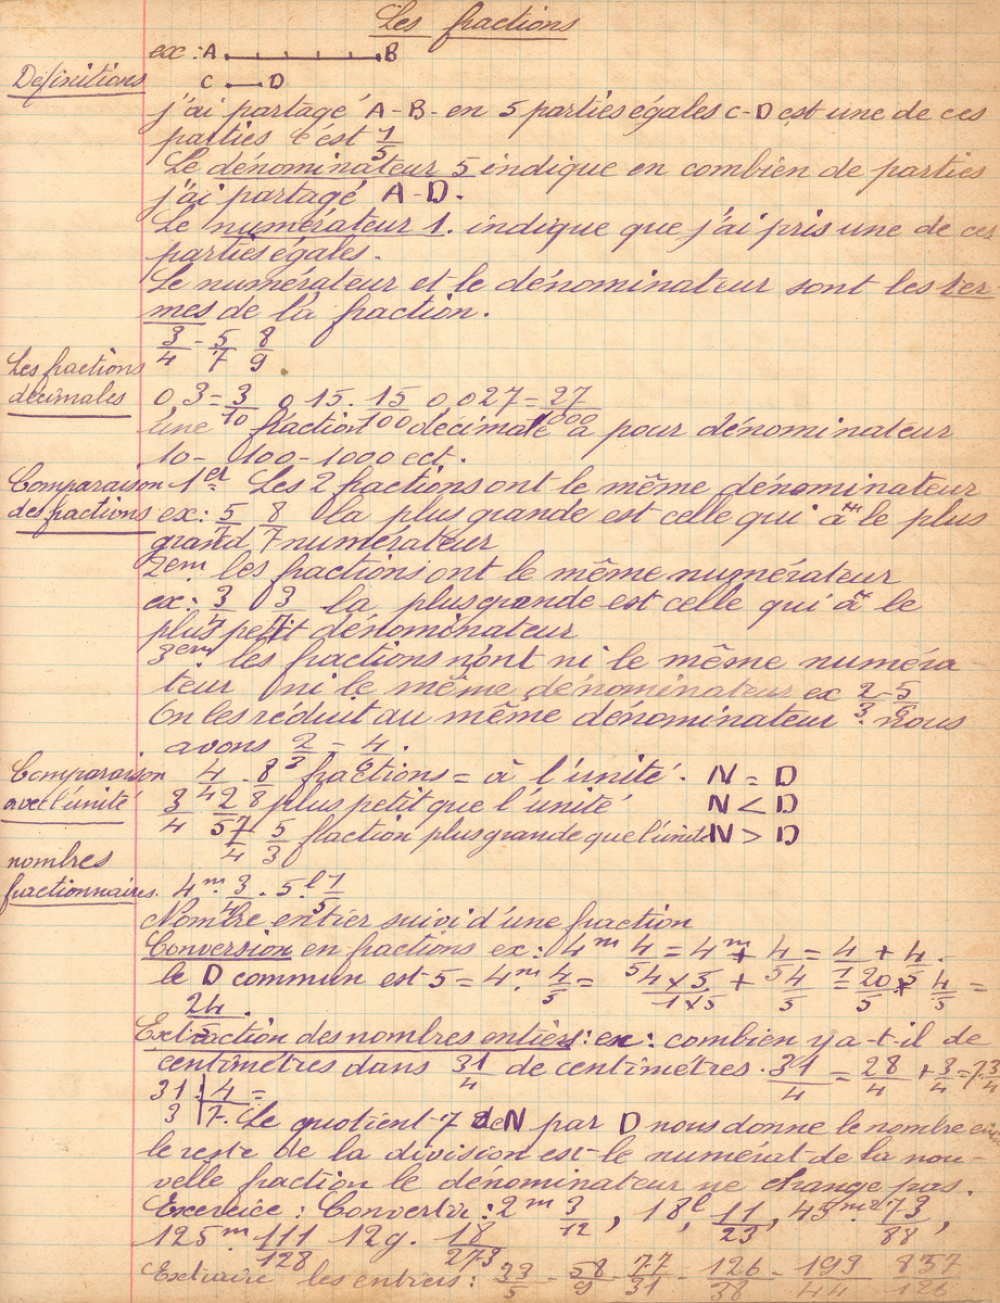 Les fractions
ex : A B
Définitions
C D
j'ai partagé A-B- en 5 parties égales C-D est une de ces
parties c'est 1/5
Le dénominateur 5 indique en combien de parties
j'ai partagé A-D.
Le numérateur 1. indique que j'ai pris une de ces
parties égales.
Le numérateur et le dénominateur sont les ter
mes de la fraction.
3/4 - 5/7 8/9
Les fractions
décimales 0 3 = 3/10 0 15. 15/100 0 027 = 27/1000
une fraction décimale a pour dénominateur
10- 100- 1000 ect.
Comparaison 1er Les 2 fractions ont le même dénominateur
des fractions ex: 5/7 8/7 la plus grande est celle qui a le plus
grand numérateur
2em les fractions ont le même numérateur
ex: 3/4 3/7 la plus grande est celle qui a le
plus petit dénominateur
3em les fractions n'ont ni le même numéra
teur ni le même dénominateur ex 2/3 - 5/6
On les réduit au même dénominateur : nous
avons 2/3 = 4/6.
Comparaison 4/4 - 8/8 fractions = à l'unité. N = D
avec l'unité 3/4 2/5 plus petit que l'unité N < D
7/4 5/3 fraction plus grande que l'unité N > D
nombres
fractionnaires. 4m. 3/4. 5l 1/5
Nombre entier suivi d'une fraction
Conversion en fractions ex: 4m 4/5 = 4m + 4/5 = 4/1 + 4/5.
le D commun est 5 = 4m 4/5 = 4x5/1x5 + 4/5 = 20/5 + 4/5 =
24/5.
Extraction des nombres entiers: ex: combien y a-t-il de
centimètres dans 31/4 de centimètres. 31/4 = 28/4 + 3/4 = 7 3/4
31 : 4 =
3 7. Le quotient 7 de N par D nous donne le nombre
le reste de la division est le numérat de la nou-
velle fraction le dénominateur ne change pas.
Exercice : Convertir : 2m 3/12, 18l, 11/23, 45m2 73/88,
125m 111/128 12g. 18/273
Extraire les entiers : 33/5 - 58/9 - 77/31 - 126/38 - 193/44 857/126